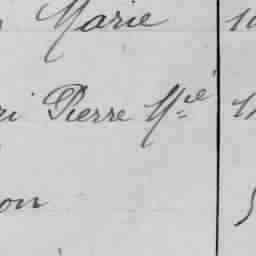 Marie
ri Pierre Mie
on